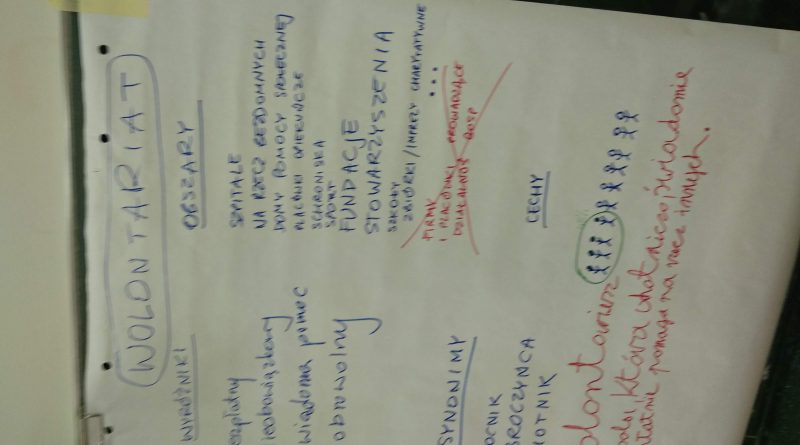 WOLONTARIAT
WYRÓŻNIKI
ezpłatny
ieobowiązkowy
wiadoma pomoc
obrowolny
OBSZARY
SZPITALE
NA RZECZ BEZDOMNYCH
DOMY POMOCY SPOŁECZNEJ
PLACÓWKI OPIEKUŃCZE
SCHRONISKA
SPORT
FUNDACJE
STOWARZYSZENIA
SZKOŁY
ZBIÓRKI/IMPREZY CHARYTATYWNE
...
FIRMY
I PLACÓWKI PROWADZĄCE
DZIAŁALNOŚĆ GOSP
SYNONIMY
OCNIK
BROCZYŃCA
HOTNIK
CECHY
olontariusz
która ochotniczo, świadomie
łatnie pomaga na rzecz innych.